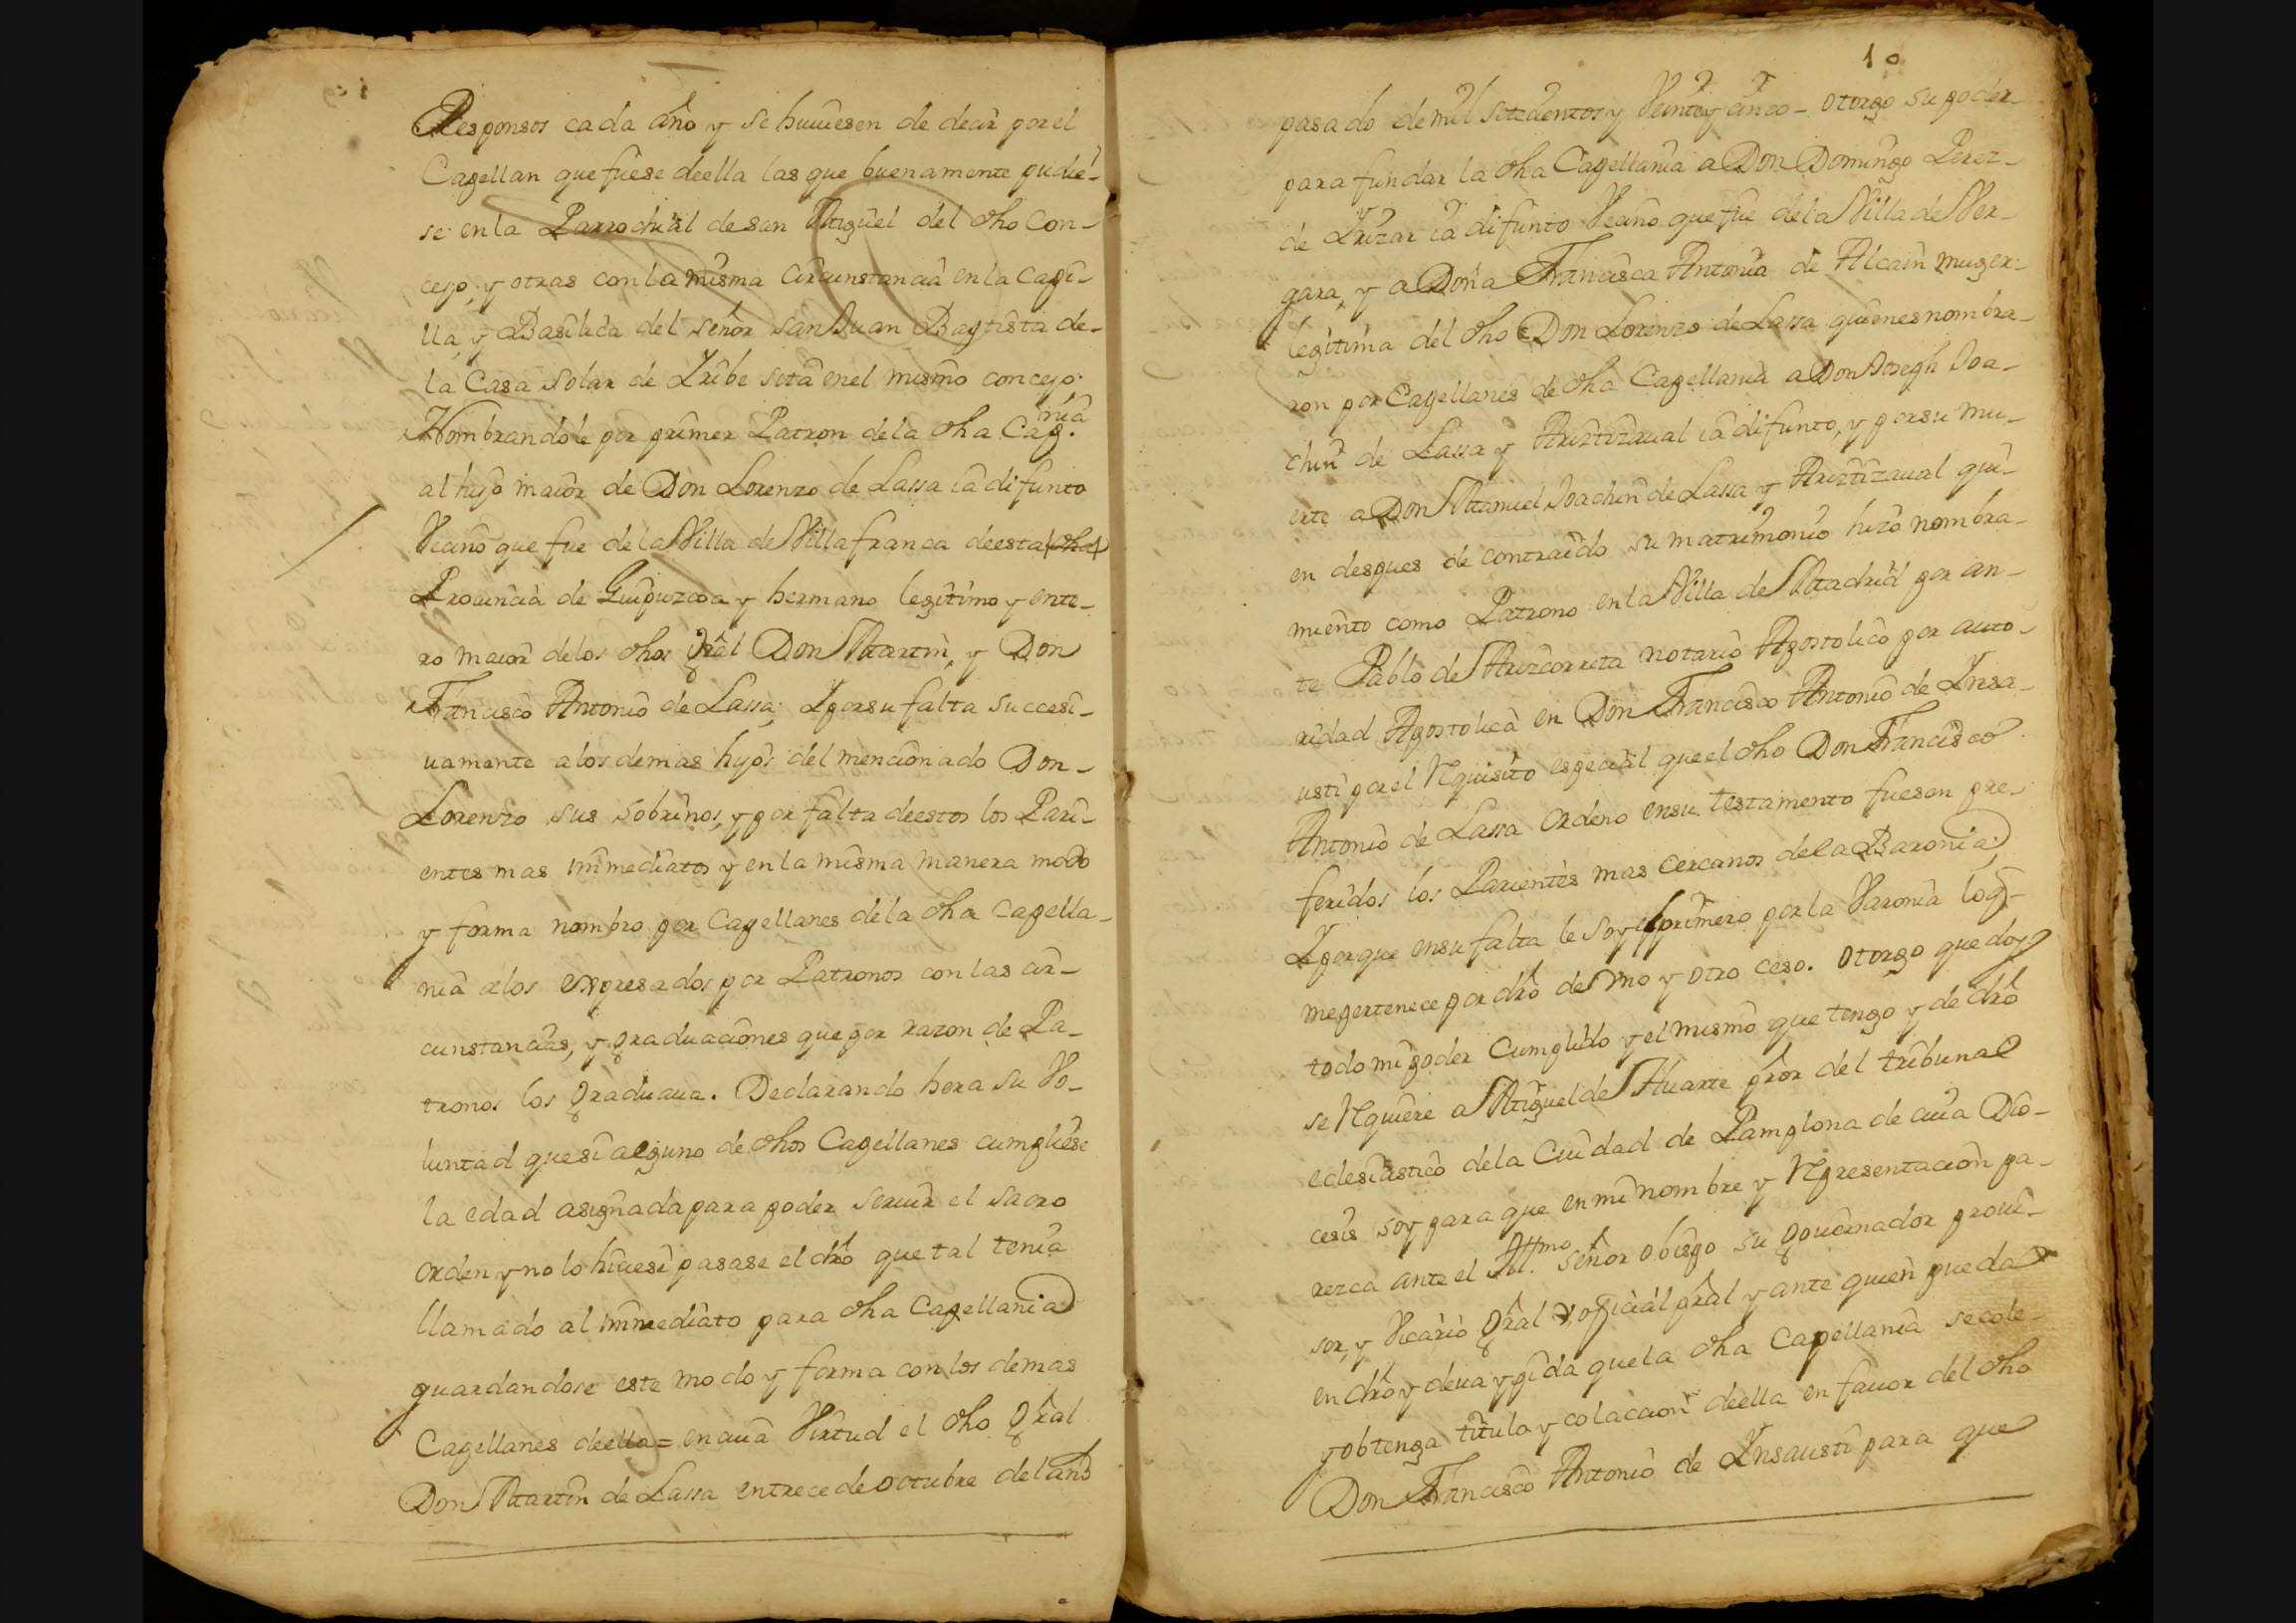 Responsos cada año y se huuiesen de decir por el
Capellan que fuese deella las que buenamente pudie-
se en la Parrochial de san Miguel del dho con-
cejo, y otras con la misma circunstancia en la capi-
lla, y Basilica del señor san Juan Baptista de-
la Casa solar de Iribe sita en el mismo concejo:
Nombrandole por primer Patron de la dha Cap.nia
al hijo maior de Don Lorenzo de Lassa ia difunto
Vecino que fue de la Villa de Villafranca de esta dha
Prouincia de Guipuzcoa y hermano legitimo y ente-
ro maior de los dhos Gral Don Martin, y Don
Francisco Antonio de Lassa; Y por su falta succesi-
uamente a los demas hijos del mencionado Don-
Lorenzo sus sobrinos, y por falta de estos los Pari-
entes mas immediatos y en la misma manera modo
y forma nombro por Capellanes de la dha capella-
nia a los expresados por Patronos con las cir-
cunstancias, y graduaciones que por razon de Pa-
tronos los graduaua. Declarando hera su Vo-
luntad que si alguno de dhos Capellanes cumpliese
la edad asignada para poder seruir el sacro
orden y no lo hiciese pasase el dro que tal tenia
llamado al immediato para dha Capellania
guardandose este modo y forma con los demas
Capellanes deella = en cuia Virtud el dho Gral
Don Martin de Lassa en trece de octubre del año
10
pasado de mil setecientos y Veinte y cinco - otorgo su poder
para fundar la dha Capellania a Don Domingo Perez-
de Irizar ia difunto Vecino que fue de la Villa de Ver-
gara, y a Doña Francisca Antonia de Alcain muger-
legitima del dho Don Lorenzo de Lassa quienes nombra-
ron por Capellanes de dha Capellania a Don Joseph Joa-
chin de Lassa y Ariztizaual ia difunto, y por su mu-
erte a Don Manuel Joachin de Lassa y Ariztizaual qui-
en despues de contraido su matrimonio hizo nombra-
miento como Patrono en la Villa de Madrid por an-
te Pablo de Arizcorreta notario Apostolico por auto-
ridad Apostolica en Don Francisco Antonio de Insa-
usti por el Requisito especial que el dho Don Francisco
Antonio de Lassa ordeno en su testamento fuesen pre-
feridos los Parientes mas cercanos de la Baronia;
Y porque en su falta le soy el primero por la Varonia lo q-
me pertenece por dro de Vno y otro ceso. otorgo que doy
todo mi poder cumplido y el mismo que tengo y de dro
se Requiere a Miguel de Huarte pror del tribunal
eclesiastico de la Ciudad de Pamplona de cuia Dio-
cesis soy para que en mi nombre y Representacion pa-
rezca ante el Ill.mo señor obispo su gouernador proui-
sor, y Vicario gral y oficial pral y ante quien pueda
en dro y deua y pida que la dha Capellania se cole-
y obtenga titulo y colaccion deella en fauor del dho
Don Francisco Antonio de Insausti para que